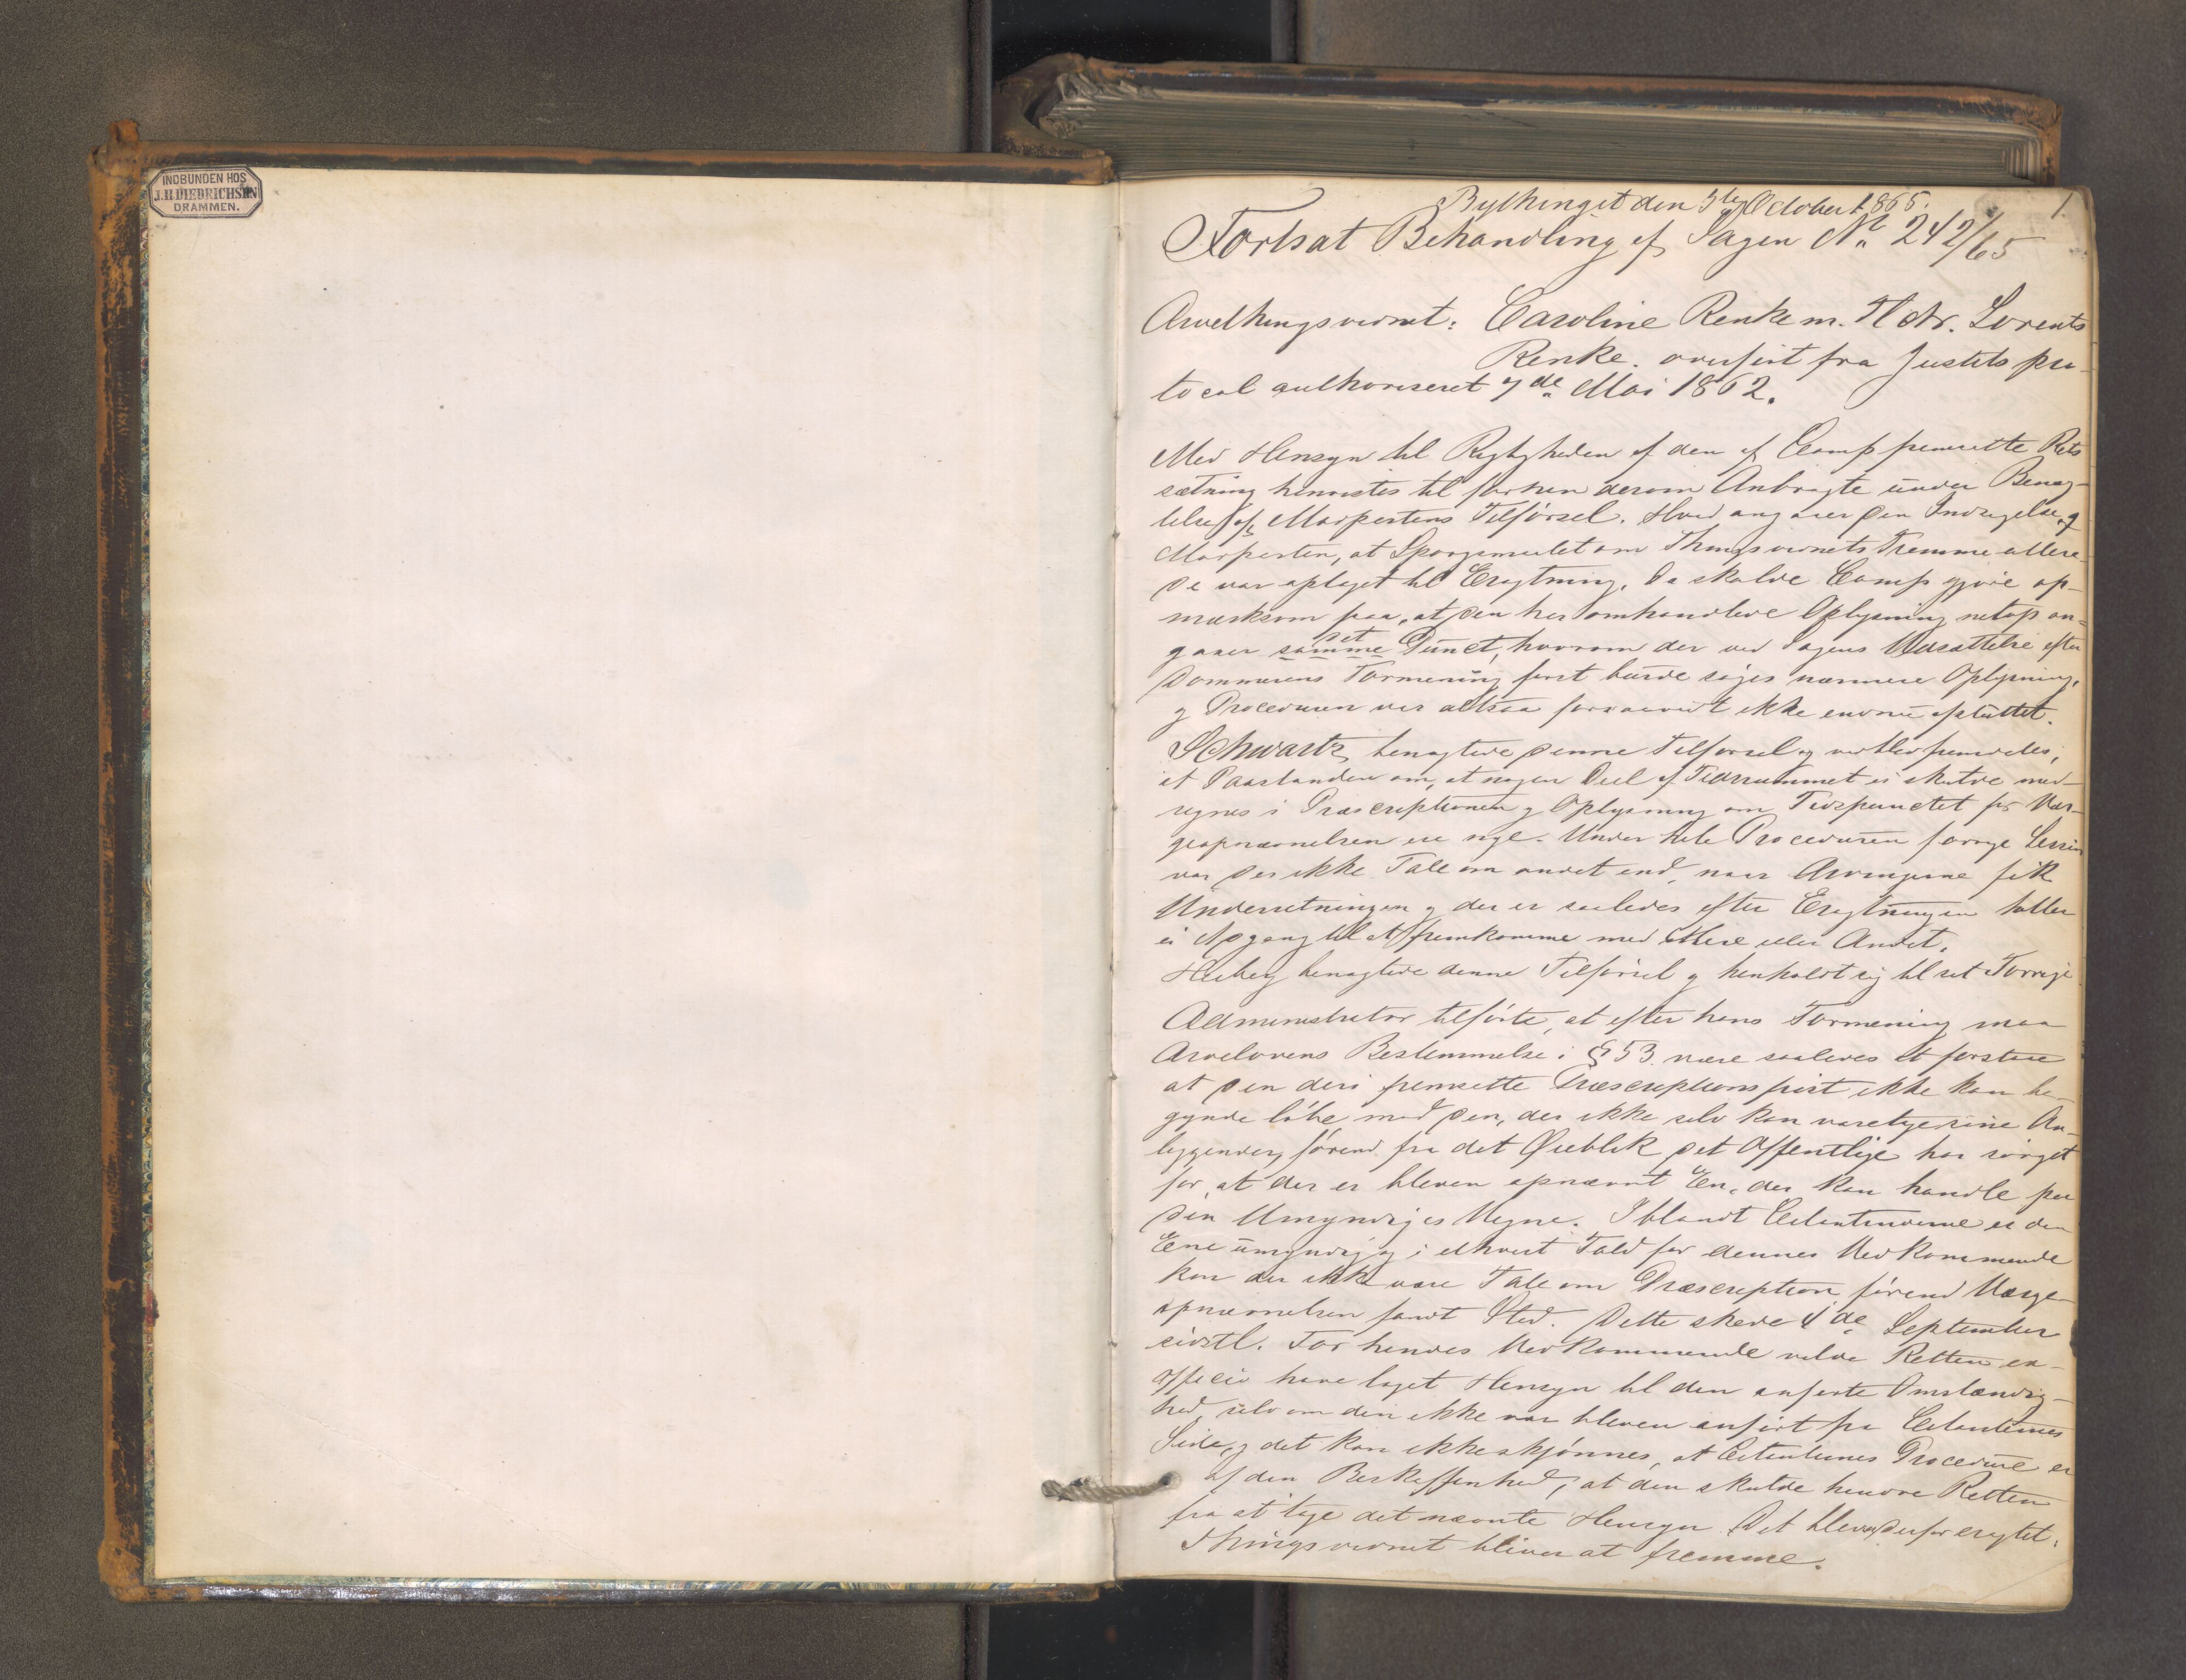 INDBUNDEN HOS
J. H. DIEDRICHSEN
DRAMMEN.
1.
Bythinget den 5te October 1865.
Fortsat Behandling af Sagen No 242/65
Arvethingsvidnet: Caroline Renke m. Fl ctr. Lorents
Renke. overført fra Justitspro-
tocol authoriseret 7de Mai 1862.
Med Hensyn til Rigtigheden af den af Camp fremsatte Rets
sætning henvistes til forhen derom Anbragte under Benæg-
telse af Morfestens Tilførsel. Hvad angaaer den Indsigelse af
Morfesten, at Spørgsmaalet om Thingsvidnets Fremme allere-
de var optaget til Eragtning, da skulde Camp gjøre op-
mærksom paa, at den her omhandlede Oplysning netop an-
gaaer det samme Punct, hvorom der ved Sagens Udsættelse efter
Dommerens Formening først burde søges nærmere Oplysning,
og Proceduren var altsaa forsaavidt ikke endnu afsluttet.
Schwartz benægtede denne Tilførsel og vedblev fremdeles,
at Paastanden om, at nogen Deel af Tidsrummet ei skulde med-
regnes i Præscriptionen og Oplysning om Tidspunctet for Vær-
geopnævnelsen ere nye. Under hele Proceduren forrige Session
var der ikke Tale om andet end, naar Arvingerne fik
Underretningen og der er saaledes efter Eragtningen heller
ei Adgang til at fremkomme med Mere eller Andet.
Heiberg benægtede denne Tilførsel og henholdt sig til det Forrige
Administrator tilførte, at efter hans Formening maa
Arvelovens Bestemmelse i § 53 være saaledes at forstaae
at den deri fremsatte Præscriptionsfrist ikke kan be-
gynde løbe mod den, der ikke selv kan varetage sine An-
liggender, førend fra det Øieblik det Offentlige har sørget
for, at der er bleven opnævnt En, der kan handle paa
den Umyndiges Vegne. Iblandt Citantinderne er den
Ene umyndig og i ethvert Fald for dennes Vedkommende
kan der ikke være Tale om Præscription førend Værge-
opnævnelsen fandt Sted. Dette skede 4de September
sidstl. For hendes Vedkommende vilde Retten ex
officio have taget Hensyn til den anførte Omstændig-
hed, selv om den ikke var bleven anført fra Citantinens
Side, og det kan ikke skjønnes, at Citantinens Procedure er
af den Beskaffenhed, at den skulde hindre Retten
fra at tage det nævnte Hensyn. Det blev derfor eragtet:
Thingsvidnet bliver at fremme.